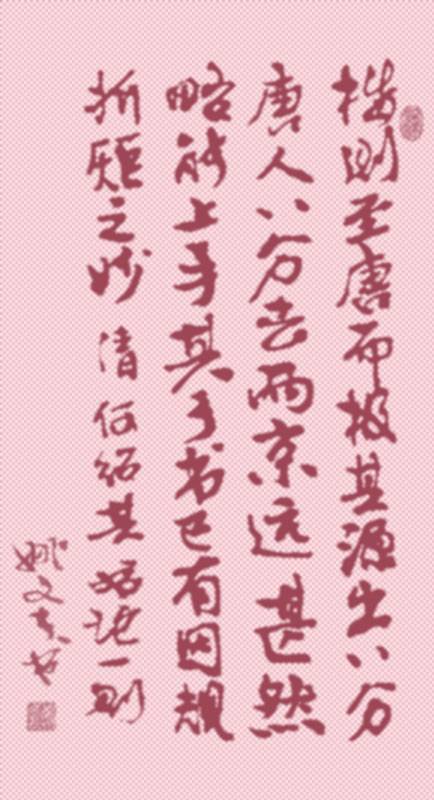 楷则至唐而极其源出八分
唐人八分去两京远甚然
略能上手其于书已有因规
折矩之妙 清 何绍基 一则
姚文